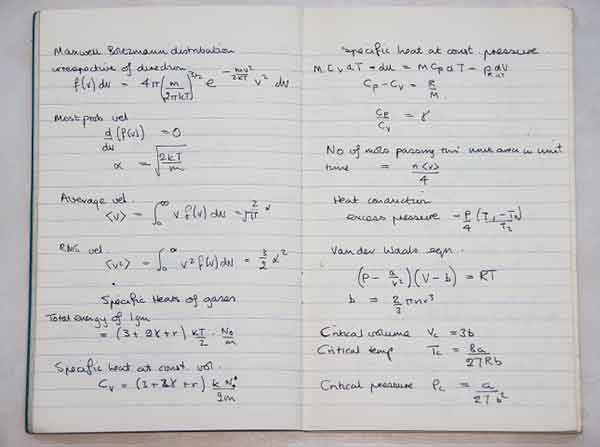 Maxwell Boltzmann distribution
irrespective of direction
f(v) dv = 4π (m/2πkT)^3/2 e^-mv²/2kT v² dv
Most prob vel
d/dv (f(v)) = 0
α = √(2kT/m)
Average vel.
<v> = ∫₀^∞ v f(v) dv = 2/√π α
RMS vel.
<v²> = ∫₀^∞ v² f(v) dv = 3/2 α²
Specific Heats of gases
Total energy of 1gm
= (3 + 2γ + r) kT/2 . N₀/m
Specific heat at const. vol.
Cv = (3 + 2γ + r) k N₀/2m
Specific heat at const. pressure
m Cv dT = du = m Cp dT - p dV
Cp - Cv = R/M.
Cp/Cv = γ
No of mols passing thro' unit area in unit
time = n<v>/4
Heat conduction
excess pressure - P/4 (T₁ - T₂/T₂)
Van der Waals eqn.
(P - a/v²)(V - b) = RT
b = 2/3 πnr³
Critical volume Vc = 3b
Critical temp Tc = 8a/27Rb
Critical pressure Pc = a/27b²